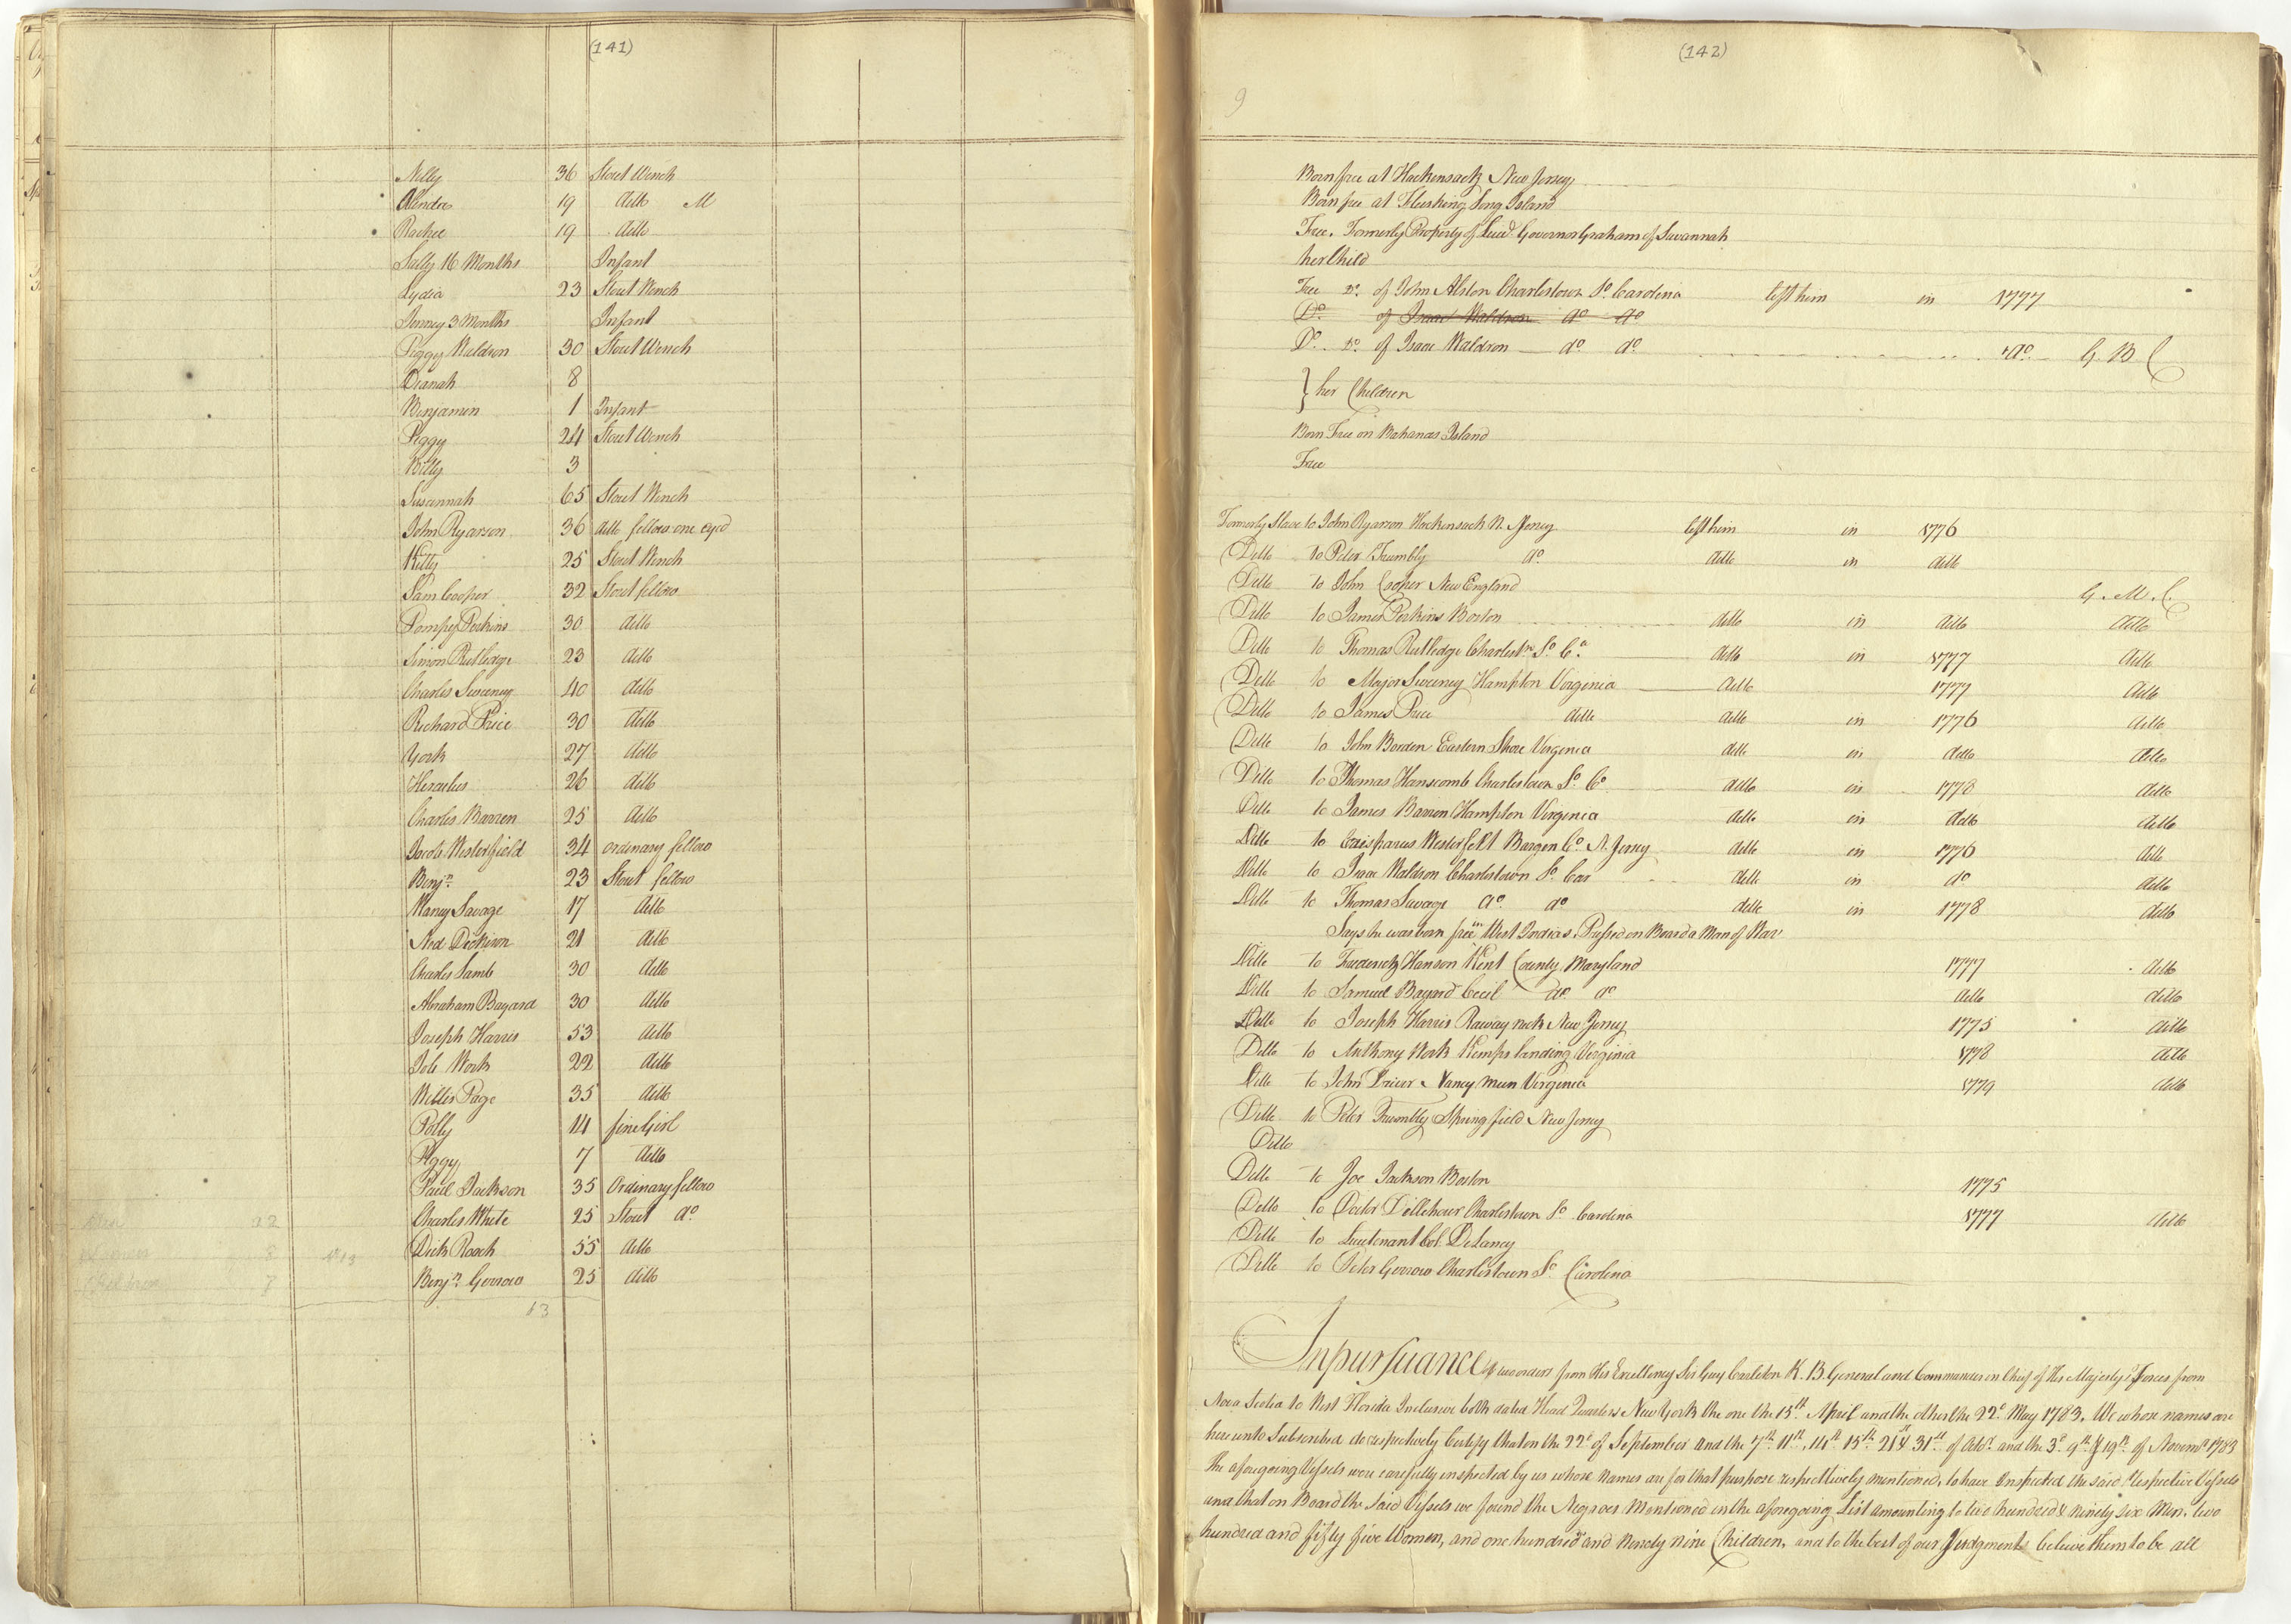 (141)
Nelly 36 Stout Wench
19 ditto M
Rachel 19 ditto
Sally 16 Months Infant
Lydia 23 Stout Wench
Jenney 3 Months Infant
Peggy Waldron 30 Stout Wench
Dianah 8
Benjamin 1 Infant
Peggy 24 Stout Wench
Billy 3
Susannah 65 Stout Wench
John Ryarson 36 ditto fellow one eyed
Kitty 25 Stout Wench
Sam Cooper 32 Stout fellow
Pompey Perkins 30 ditto
Simon Rutledge 23 ditto
Charles Sweeney 40 ditto
Richard Price 30 ditto
York 27 ditto
Hercules 26 ditto
Charles Barren 25 ditto
Jacob Westerfield 34 ordinary fellow
Benjn 23 Stout fellow
Savage 17 ditto
Ned Dickison 21 ditto
Charles Lamb 30 ditto
Abraham Bayard 30 ditto
Joseph Harris 53 ditto
Job Work 22 ditto
Willis Page 35 ditto
Polly 14 fine Girl
Peggy 7 ditto
Paul Jackson 35 Ordinary fellow
Charles White 25 Stout do
Dick Roach 55 ditto
Benjn Gerrow 25 ditto
Men 22
Women 8
Children 7
(142)
9
Born free at Hackensack New Jersey
Born free at Flushing Long Island
Free. Formerly Property of Lieut Governor Graham of Savannah
her Child
Free Do of John Alston Charlestown So Carolina left him in 1777
Do of Isaac Waldron do do
Do Do of Isaac Waldron do do do G. B C
} her Children
Born Free on Bahamas Island
Free
Formerly Slave to John Ryarson Hackensack N. Jersey left him in 1776
Ditto to Peter Trumbly do ditto in ditto
Ditto to John Cooper New England G. M. C.
Ditto to James Perkins Boston ditto in ditto ditto
Ditto to Thomas Rutledge Charlestn So Ca ditto in 1777 ditto
Ditto to Major Sweeney Hampton Virginia ditto 1777 ditto
Ditto to James Price ditto ditto in 1776 ditto
Ditto to John Borden Eastern Shore Virginia ditto in ditto ditto
Ditto to Thomas Hanscomb Charlestown So Co ditto in 1778 ditto
Ditto to James Barron Hampton Virginia ditto in ditto ditto
Ditto to Westerfelt Bargen Co N. Jersey ditto in 1776 ditto
Ditto to Isaac Waldron Charlestown So Car ditto in do ditto
Ditto to Thomas Savage do do ditto in 1778 ditto
Says he was born free in West Indies. Pressed on Board a Man of War
Ditto to Frederick Hanson Kent County Maryland 1777 ditto
Ditto to Samuel Bayard Cecil do do ditto ditto
Ditto to Joseph Harris Raway neck New Jersey 1775 ditto
Ditto to Anthony Work Kemps landing Virginia 1778 ditto
Ditto to John Driver Nancy mun Virginia 1779 ditto
Ditto to Peter Trumbly Springfield New Jersey
Ditto
Ditto to Joe Jackson Boston 1775
Ditto to Doctor Dillehour Charlestown So Carolina 1777 ditto
Ditto to Lieutenant Col. DeLancy
Ditto to Peter Gerrow Charlestown So Carolina
In pursuance of two orders from His Excellency Sir Guy Carleton K. B. General and Commander in Chief of His Majesty's Forces from
Nova Scotia to West Florida Inclusive both dated Head Quarters New York the one the 15th April and the other the 22d May 1783. We whose names are
hereunto Subscribed do respectively Certify that on the 22d of September and the 7th 11th, 14th 15th 21st & 31st of Octr and the 3d 9th & 19th of Novemr 1783
the aforegoing Vessels were carefully inspected by us whose names are for that purpose respectively mentioned, to have Inspected the said respective Vessels
and that on Board the said Vessels we found the Negroes Mentioned in the aforegoing List amounting to two hundred & ninety six Men, two
hundred and fifty five Women, and one hundred and Ninety Nine Children, and to the best of our Judgments believe them to be all